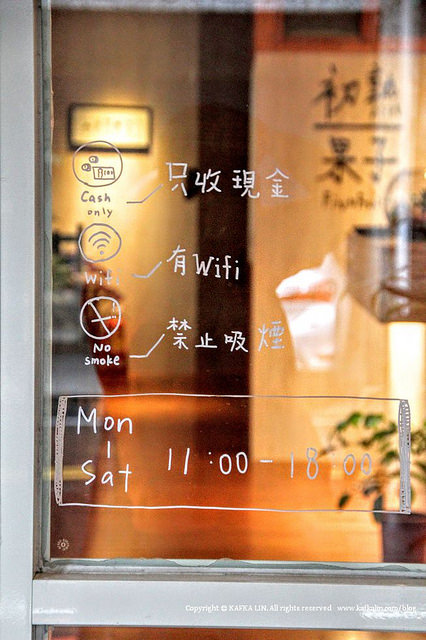 初熟
果子
$100
Cash
only
只收現金
Wifi
有Wifi
No
smoke
禁止吸煙
Mon
|
Sat
11:00-18:00
Copyright © KAFKA LIN. All rights reserved www.kafkalin.com/blog